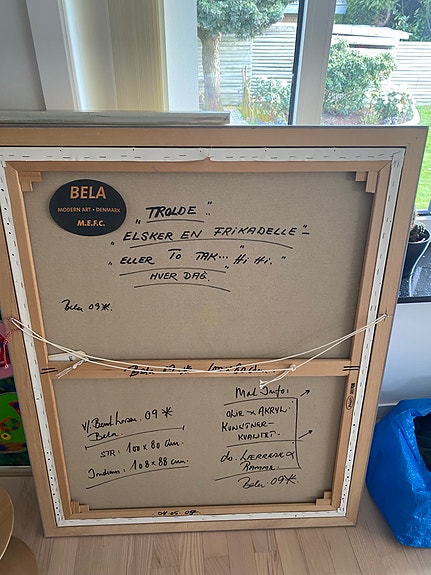 BELA
MODERN ART • DENMARK
M.E.F.C.
"TROLDE"
"ELSKER EN FRIKADELLE"
"ELLER TO TAK..." Hi Hi."
HVER DAG.
Bela 09*.
Bela
Mal Info:
v/. 09*
Bela
STR: 100 x 80 cm.
108 x 88 cm.
OLIE X AKRYL.
KUNSTNER-
KVALITET.
do. LÆRRED X
RAMME.
Bela 09*.